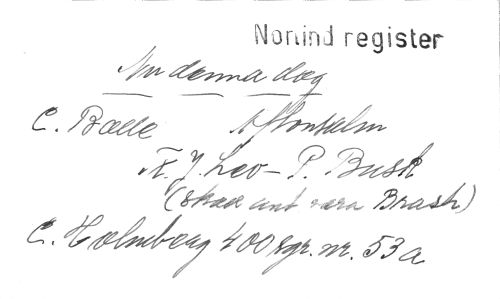 Nonind register
Nu denna dag
C. Boelle Aftonsalm
F. J. Leo - P. Busk
(skall ant vara Brash)
C. Holmberg 400 sgr. nr. 53 a